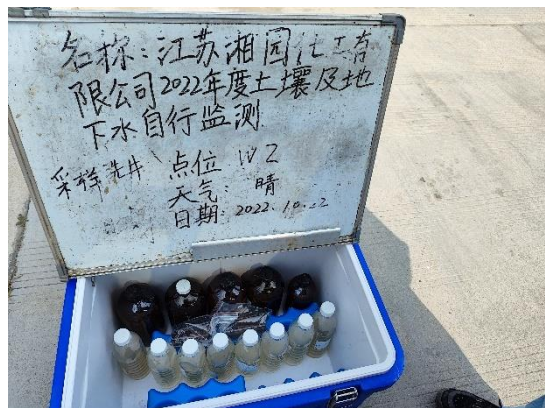 名称：江苏湘园化工有
限公司2022年度土壤及地
下水自行监测
采样洗井 点位 W2
天气：晴
日期：2022.10.22